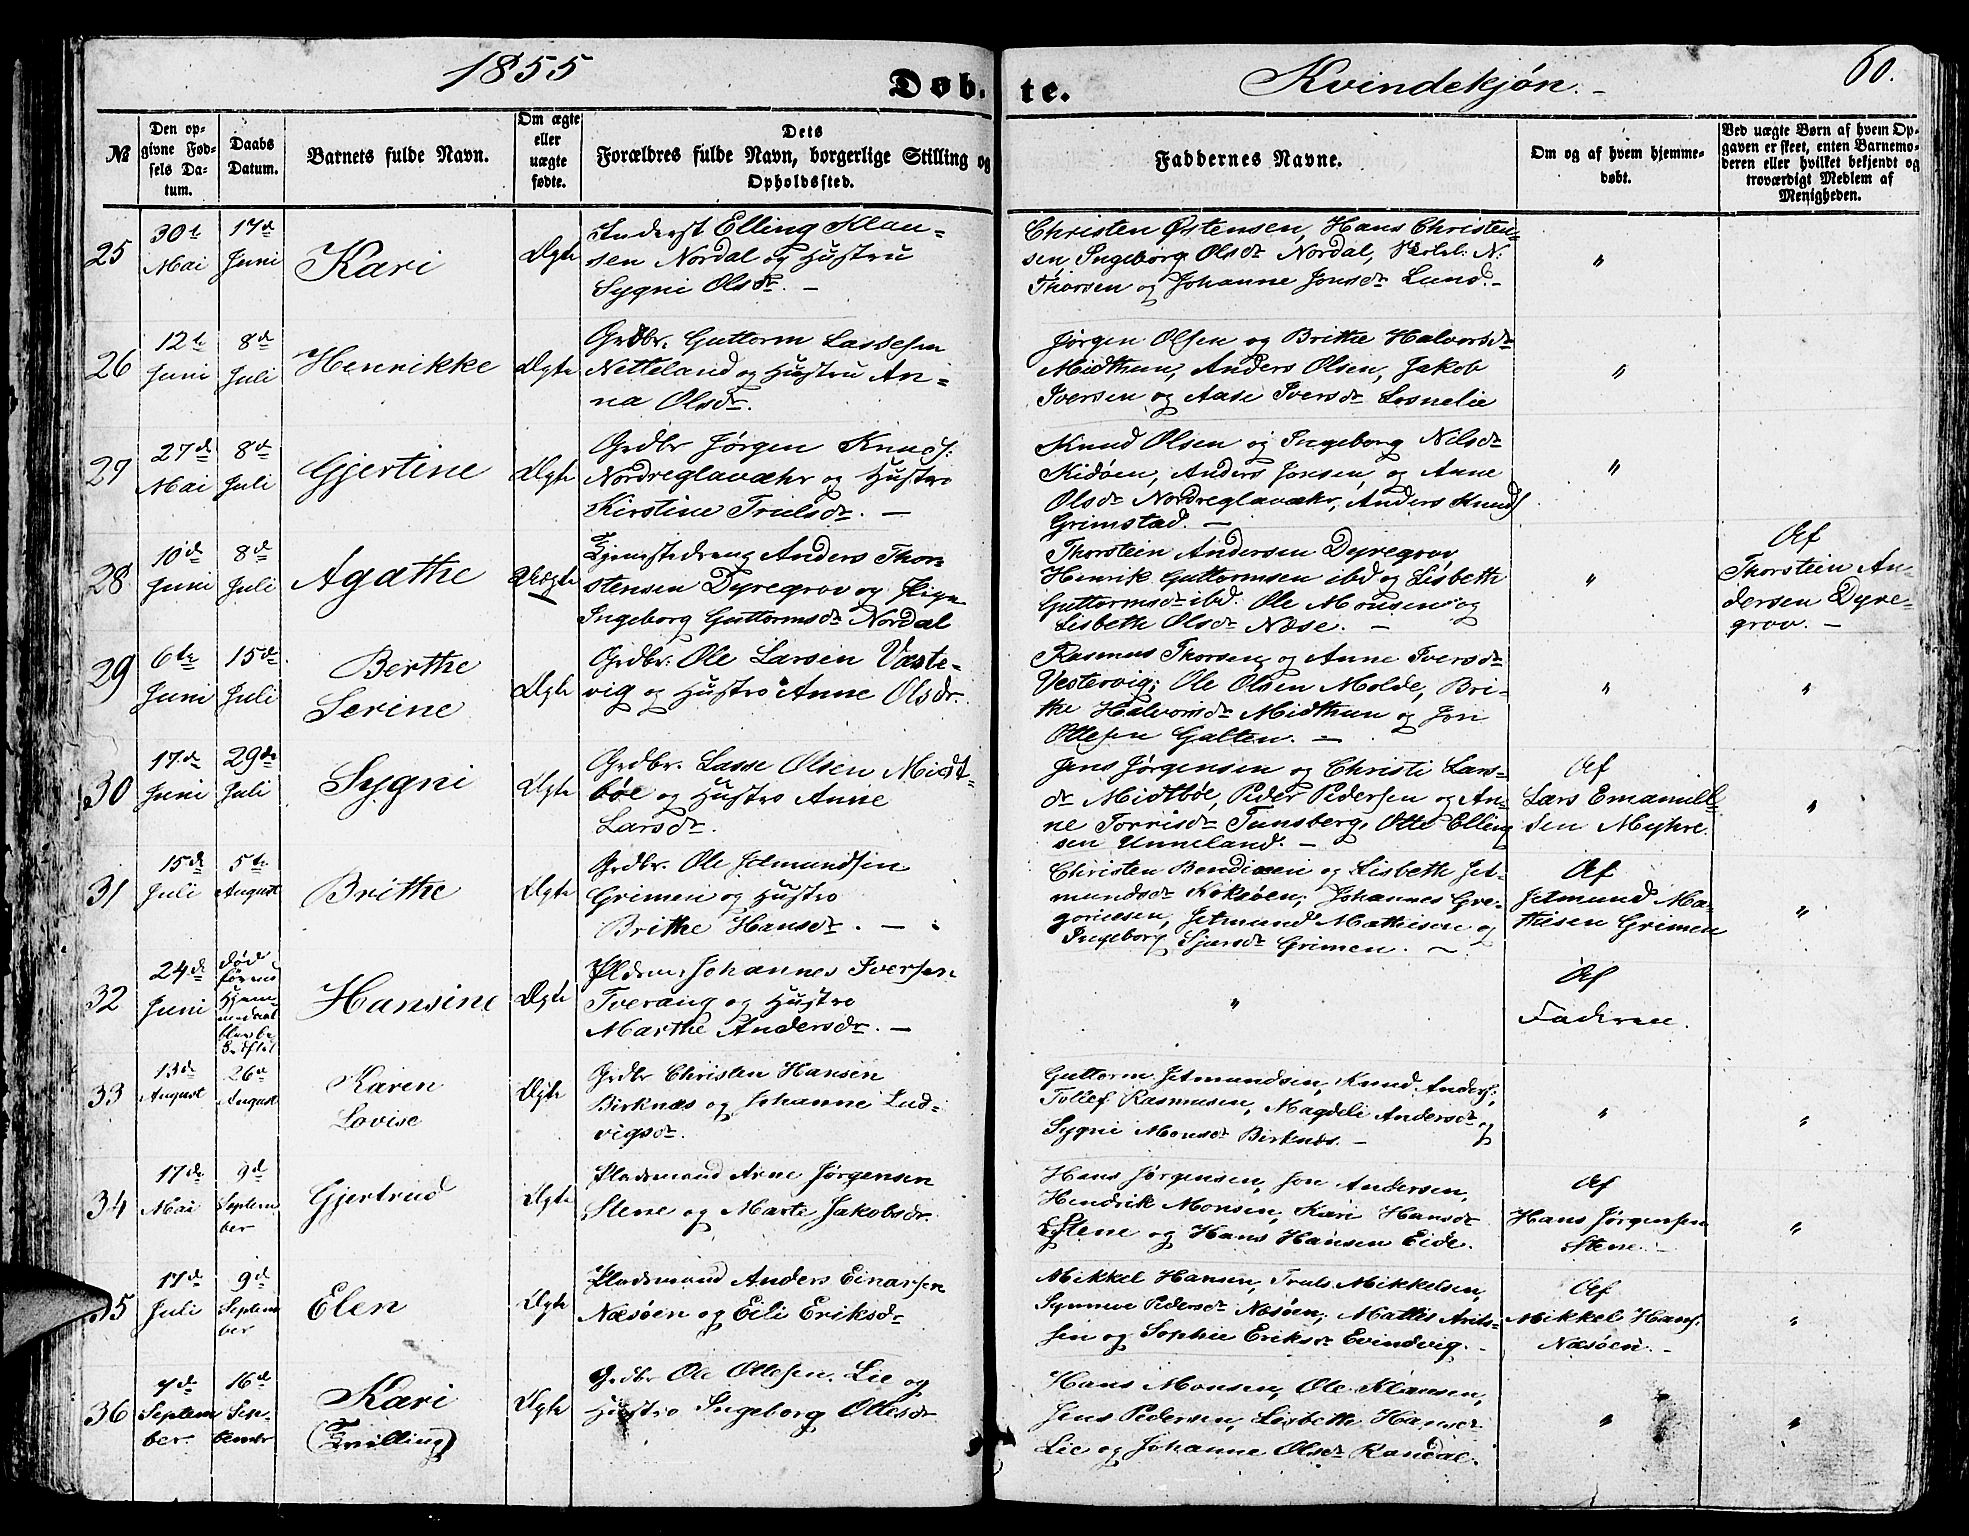 1855
Døb. te.
Kvindekjøn. -
60.
№
Den op-
givne Fød-
sels Da-
tum.
Daabs
Datum.
Barnets fulde Navn.
Om ægte
eller
uægte
fødte.
Dets
Forældres fulde Navn, borgerlige Stilling og
Opholdssted.
Faddernes Navne.
Om og af hvem hjemme-
døbt.
Ved uægte Børn af hvem Op-
gaven er skeet, enten Barnemo-
deren eller hvilket bekjendt og
troværdigt Medlem af
Menigheden.
25
30t
Mai
17d
Juni
Kari
Ægte
Inderst Elling Klau-
sen Nordal og Hustru
Sygni Olsdr. -
Christen Østensen, Hans Christen-
sen Ingeborg Olsdr Nordal, N:
Thorsen og Johanne Jonsdr Lund. -
"
26
12te
Juni
8de
Juli
Henrikke
Ægte
Grdbr. Guttorm Lassesen
Netteland og Hustru An-
na Olsdr.
Jørgen Olsen og Brithe Halvorsdr
Midthun, Anders Olsen, Jakob
Iversen og Aase Iversdr Losnelie
"
27
27de
Mai
8de
Juli
Gjertine
Ægte
Grdbr Jørgen Knuds:
Nordreglavæhr og Hustro
Kirstine Trulsdr. -
Knud Olsen og Ingeborg Nilsdr
Kidøen, Anders Jonsen, og Anne
Olsdr Nordreglavæhr, Anders Knuds
Grimstad. -
"
28
10de
Juni
8de
Juli
Agathe
Uægte
Tjenestedreng Anders Thor-
stensen Dyregrov og Pige
Ingeborg Guttormsdr Nordal
Thorstein Andersen Dyregrov
Henrik Guttormsen ibd og Lisbeth
Guttormsdr ibd. Ole Monsen og
Lisbeth Olsdr Næse. -
"
Af
Thorstein An-
dersen Dyre-
grov. -
29
6te
Juni
15de
Juli
Berthe
Serine
Ægte
Grdbr. Ole Larsen Væste-
vig og Hustro Anne Olsdr.
Rasmus Thorsen og Anne Iversdr
Vestervig; Ole Olsen Molde, Bri-
the Halvorsdr Midthun og Jon
Ottesen Galten. -
"
"
30
17de
Juni
29de
Juli
Sygni
Ægte
Grdbr. Lasse Olsen Midt-
bøe og Hustro Anne
Larsdr.
Jens Jørgensen og Christi Lars-
dr Midtbøe, Peder Pedersen og An-
ne Torrisdr Tunsberg, Otte Elling
sen Unneland. -
Af
Lars Emanuel
sen Myhre.
"
31
15de
Juli
5te
August
Brithe
Ægte
Grdbr. Ole Jetmundsen
Grimen og Hustro
Brithe Hansdr. -
Christen Bendixen og Lisbeth Jet-
mundsdr Koksøen, Johannes Gre-
goriesen, Jetmund Mathisen og
Ingeborg Sjursdr Grimen. -
Af
Jetmund Ma-
thisen Grimen
"
32
24de
Juni
død
før en
Hjem-
medaab
blev be-
Hansine
Ægte
Pladsm. Johannes Iversen
Tverang og Hustro
Marthe Andersdr. -
"
Af
Faderen.
33
13de
August
26de
August
Karen
Lovise
Ægte
Grdbr Christen Hansen
Birknæs og Johanne Lud-
vigsdr.
Guttorm Jetmundsen, Knud Anders:
Tollef Rasmusen, Magdeli Andersdr og
Sygni Monsdr Birknæs. -
"
"
34
17de
Mai
9de
Septem
ber
Gjertrud
Ægte
Pladsmand Arne Jørgensen
Stene og Marte Jakobsdr.
Hans Jørgensen, Jon Andersen,
Hendrik Monsen, Kari Hansdr
Stene og Hans Hansen Eide.
Af
Hans Jørgensen
Stene. -
"
35
17de
Juli
9de
Septem
ber
Elen
Ægte
Pladsmand Anders Einarsen
Næsøen og Eili Eriksdr
Mikkel Hansen, Truls Mikkelsen,
Synneve Pedersdr Næsøen, Mattis Arits-
sen og Sophie Eriksdr Evindvig. -
Af
Mikkel Hans:
Næsøen. -
"
36
7de
Septem
ber.
16de
Sep-
tember
Kari
(Tvilling)
Ægte
Grdbr Ole Ottesen Lie og
Hustro Ingeborg Ottesdr
Hans Monsen, Ole Klausen,
Jens Pedersen, Lisbeth Hansdr
Lie og Johanne Olsdr Randal.
"
"